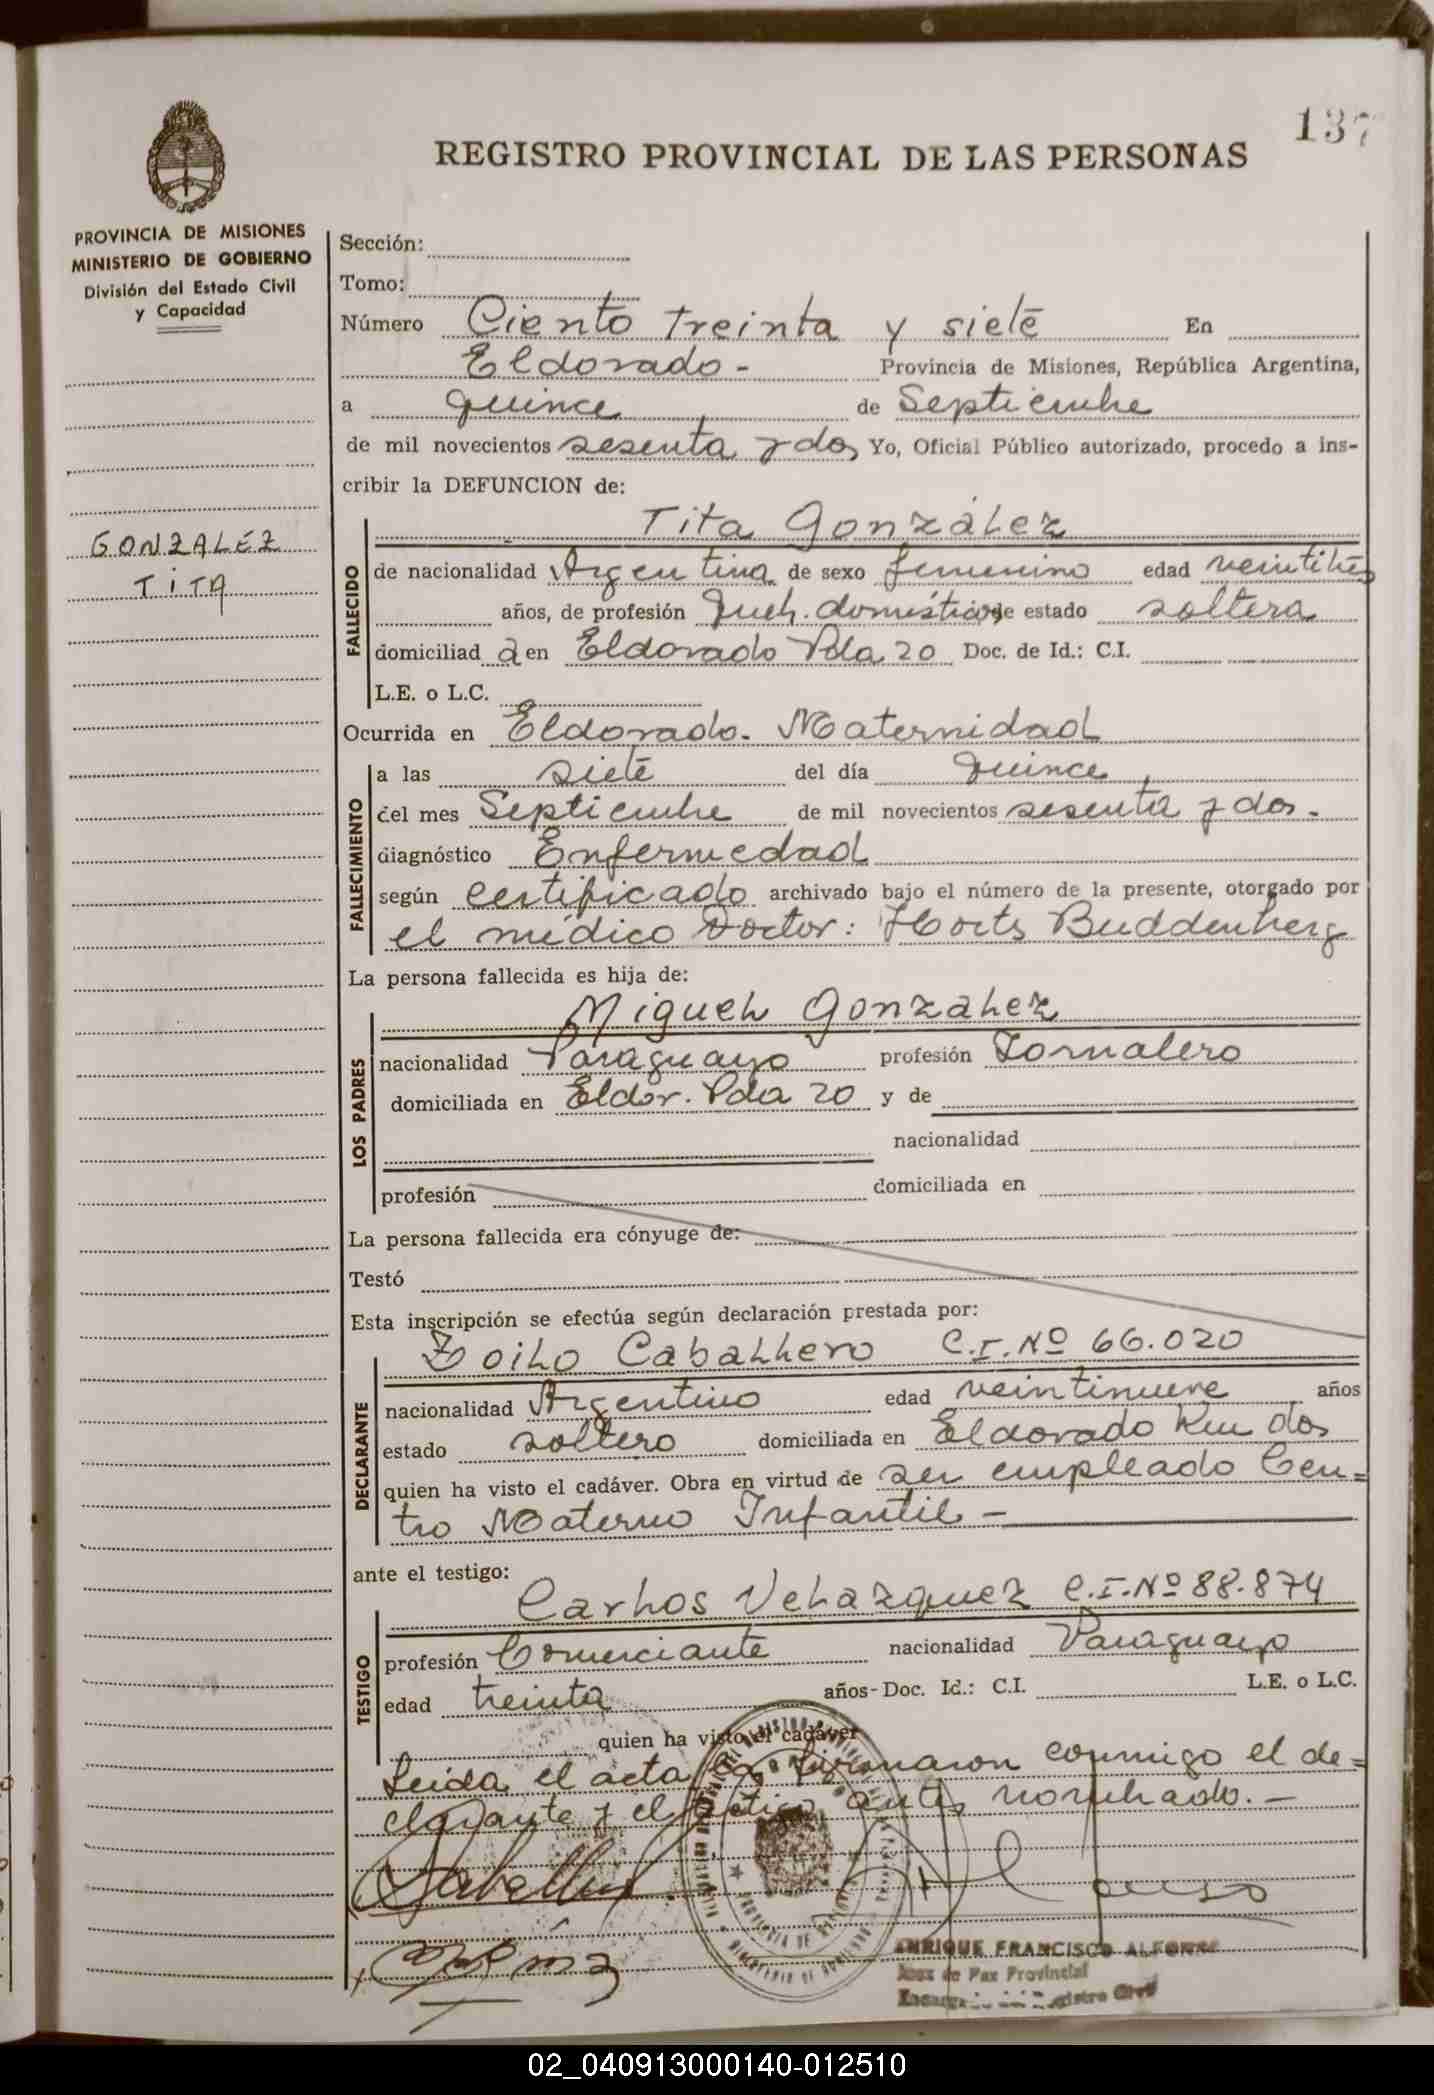 137
REGISTRO PROVINCIAL DE LAS PERSONAS
PROVINCIA DE MISIONES
MINISTERIO DE GOBIERNO
División del Estado Civil
y Capacidad
GONZALEZ
TITA
Sección:
Tomo:
Número Ciento treinta y siete En
Eldorado - Provincia de Misiones, República Argentina,
a quince de Septiembre
de mil novecientos sesenta y dos Yo, Oficial Público autorizado, procedo a ins-
cribir la DEFUNCION de:
Tita González
FALLECIDO
de nacionalidad Argentina de sexo femenino edad veintitrés
años, de profesión Queh. domésticos de estado soltera
domiciliad a en Eldorado Pda 20 Doc. de Id.: C.I.
L.E. o L.C.
Ocurrida en Eldorado. Maternidad
FALLECIMIENTO
a las siete del día quince
del mes Septiembre de mil novecientos sesenta y dos.
diagnóstico Enfermedad
según certificado archivado bajo el número de la presente, otorgado por
el médico Doctor: Horts Buddenberg
La persona fallecida es hija de:
Miguel Gonzalez
LOS PADRES
nacionalidad Paraguayo profesión Jornalero
domiciliada en Eldor. Pda 20 y de
nacionalidad
profesión domiciliada en
La persona fallecida era cónyuge de:
Testó
Esta inscripción se efectúa según declaración prestada por:
Zoilo Caballero C.I.Nº 66.020
DECLARANTE
nacionalidad Argentino edad veintinueve años
estado soltero domiciliada en Eldorado Km dos
quien ha visto el cadáver. Obra en virtud de ser empleado Cen=
tro Materno Infantil -
ante el testigo:
Carlos Velazquez C.I.Nº 88.874
TESTIGO
profesión Comerciante nacionalidad Paraguayo
edad treinta años-Doc. Id.: C.I. L.E. o L.C.
quien ha visto el cadáver
Leida el acta la firmaron conmigo el de=
clarante y el testigo antes nombrado. -
ENRIQUE FRANCISCO ALFONSO
Juez de Paz Provincial
02_040913000140-012510